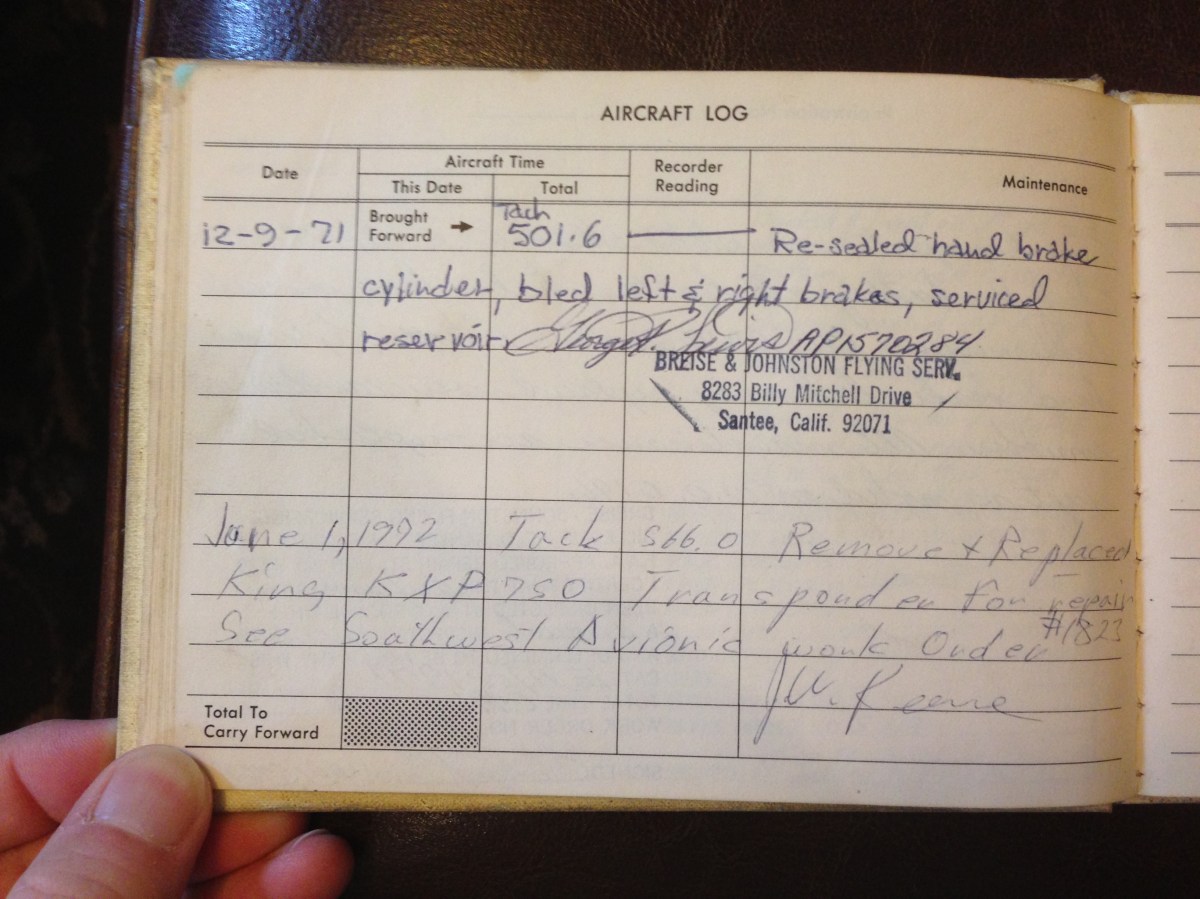 AIRCRAFT LOG
Date Aircraft Time Recorder Reading Maintenance
This Date Total
Brought Forward → Tach
12-9-71 501.6 Re-sealed hand brake
cylinder, bled left & right brakes, serviced
reservoir. George P. Lewis AP1570284
BREISE & JOHNSTON FLYING SERV.
8283 Billy Mitchell Drive
Santee, Calif. 92071
June 1, 1972 Tack 566.0 Remove & Replaced
King KXP 750 Transponder for repair
See Southwest Avionic work Order #1823
J.W. Keene
Total To
Carry Forward